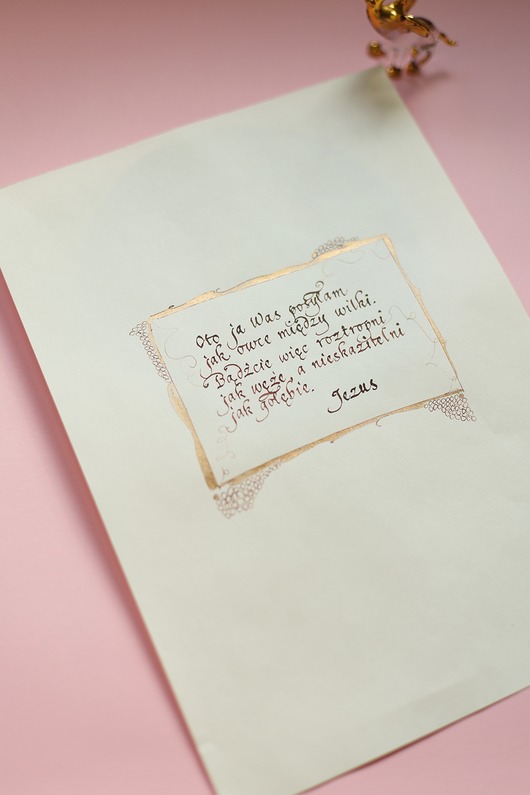 Oto ja Was posyłam
jak owce między wilki.
Bądźcie więc roztropni
jak węże, a nieskazitelni
jak gołębie.
Jezus